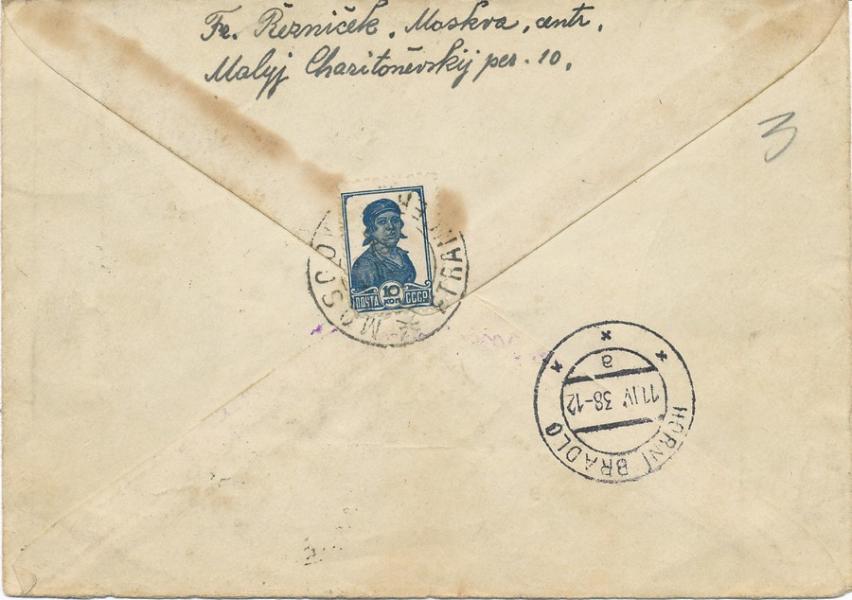 Fr. Řezníček, Moskva, centr,
Malyj Charitoněvskij per. 10.
3
10
КОП
ПОЧТА СССР
MOSCOU
HORNÍ BRADLO
a
11.IV 38-12